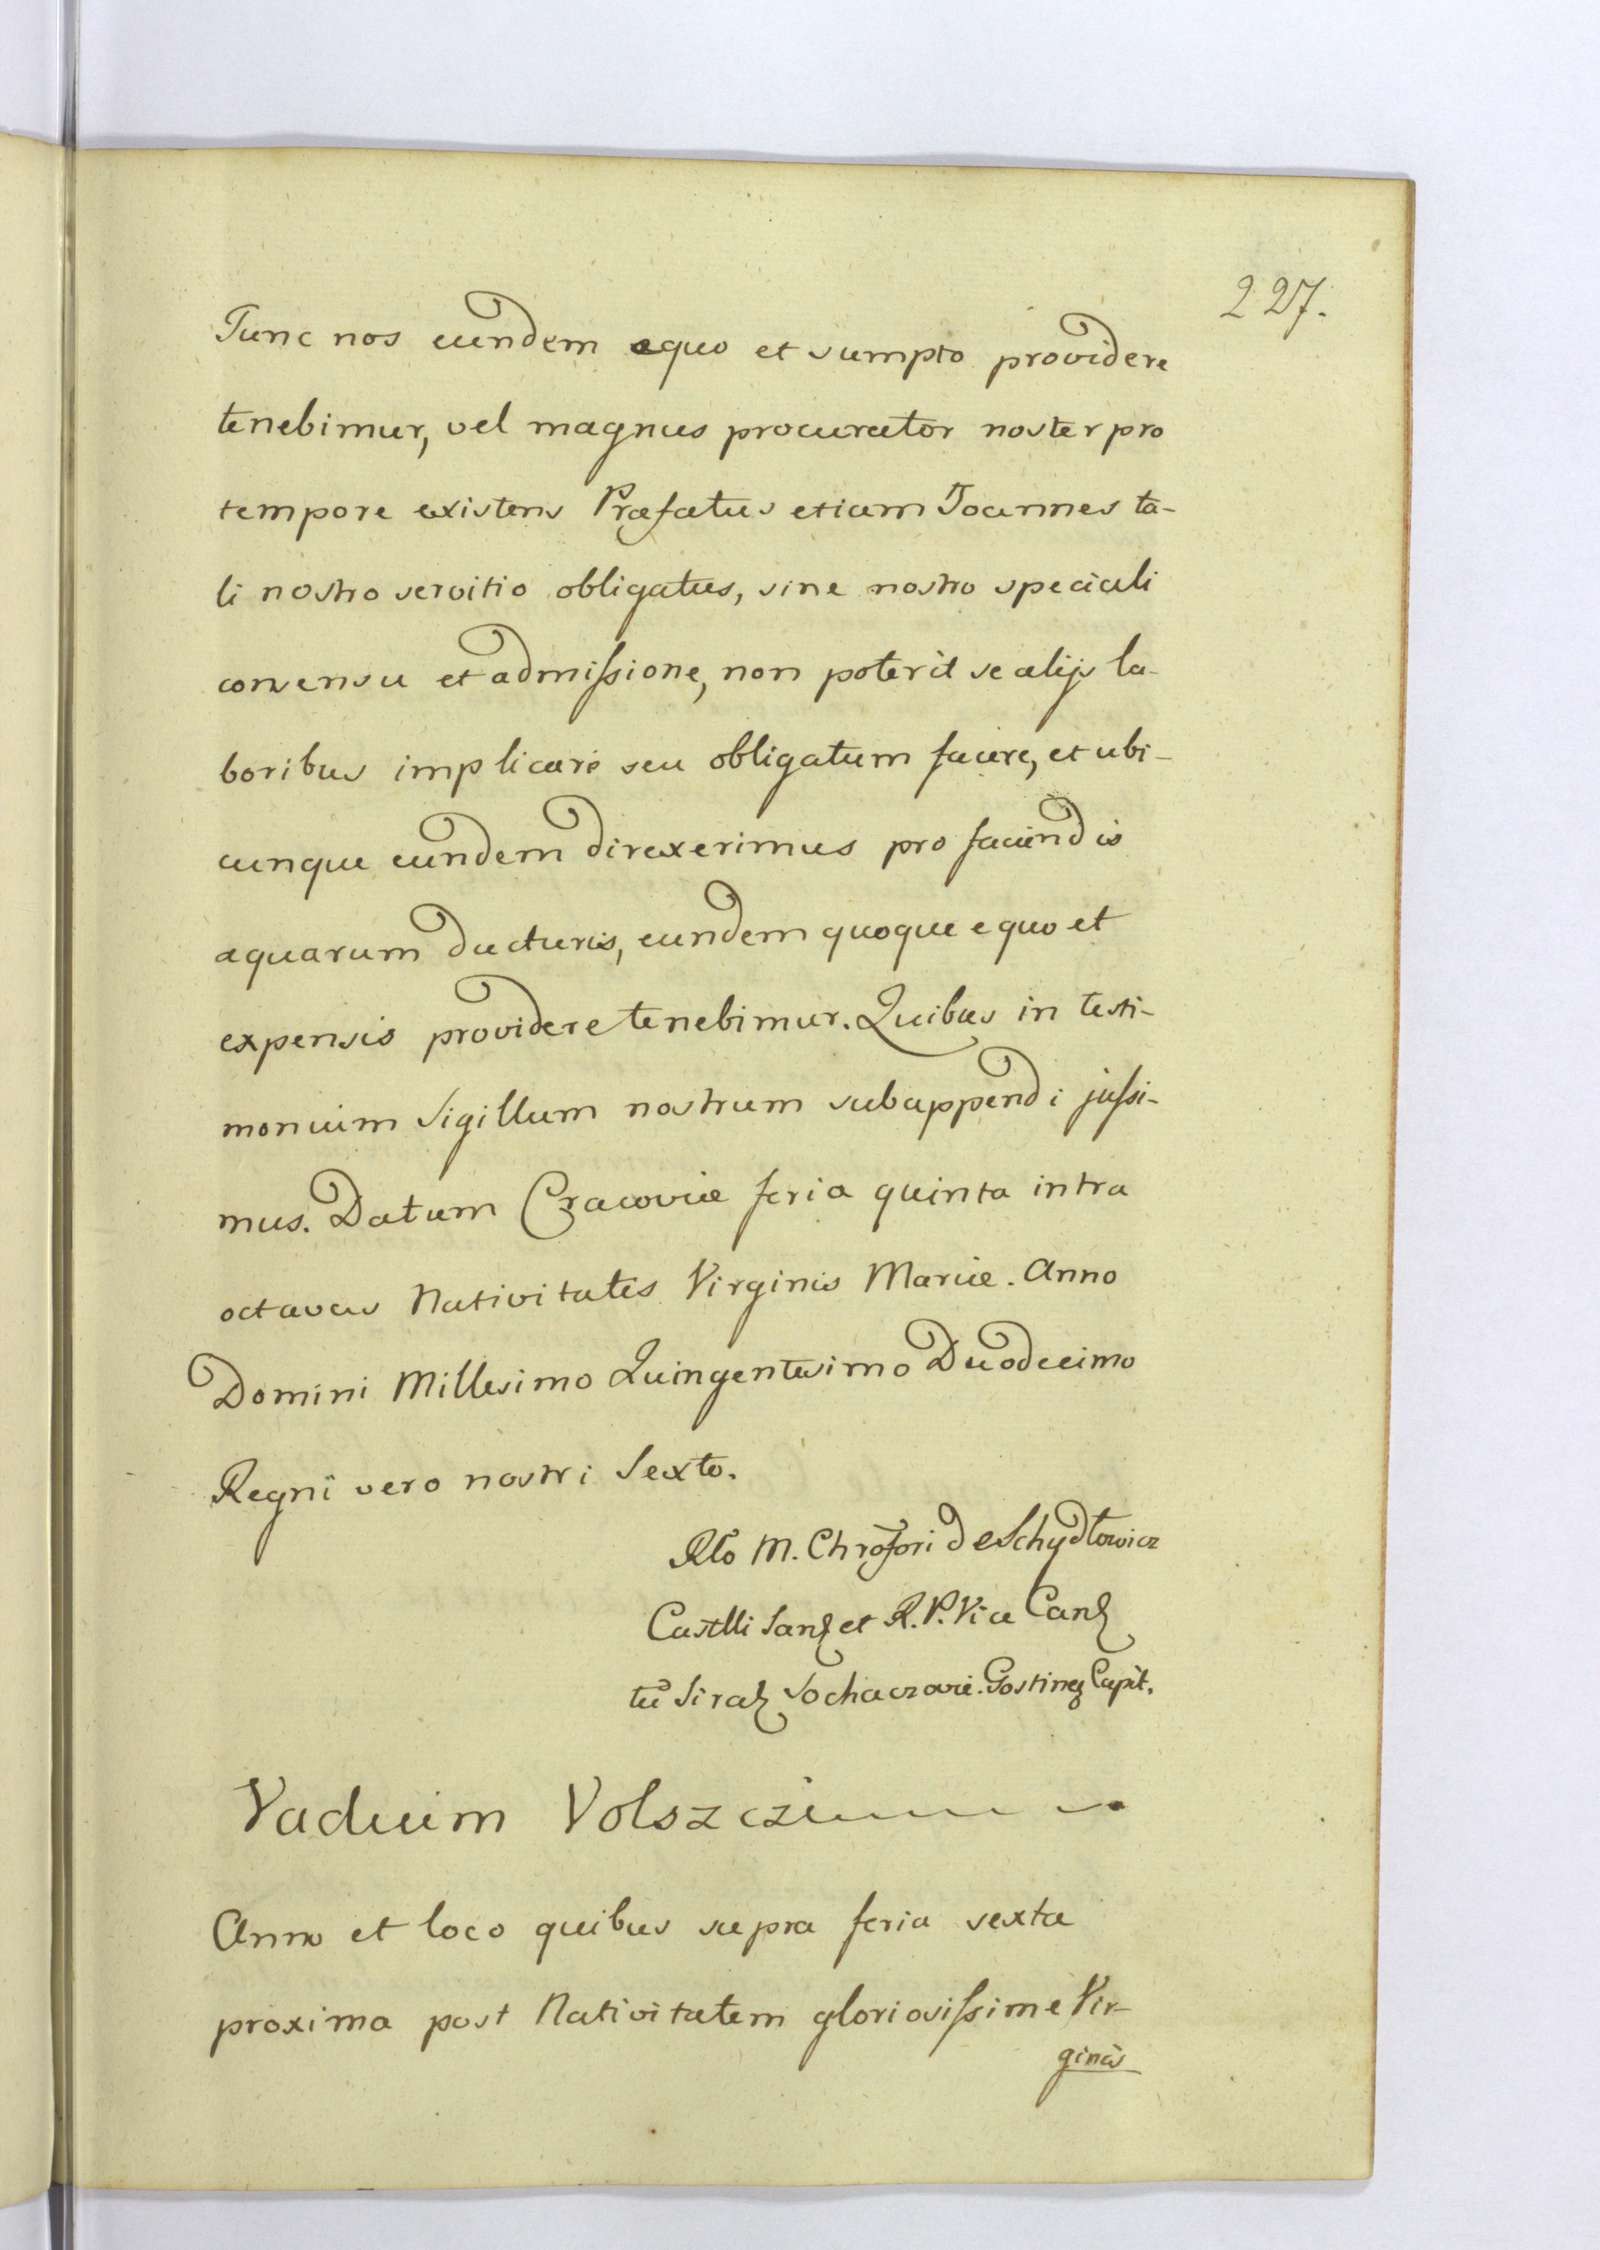 227.
Tunc nos eundem equo et sumpto providere
tenebimur, vel magnus procurator noster pro
tempore existens Præfatus etiam Joannes ta-
li nostro servitio obligatus, sine nostro speciali
consensu et admissione, non poterit se alijs la-
boribus implicare seu obligatum facere, et ubi-
cunque eundem direxerimus pro faciendis
aquarum ducturis, eundem quoque equo et
expensis providere tenebimur. Quibus in testi-
monium Sigillum nostrum subappendi jussi-
mus. Datum Cracoviæ feria quinta intra
octavas Nativitatis Virginis Mariæ. Anno
Domini Millesimo Quingentesimo Duodecimo
Regni vero nostri Sexto.
Rlo M. Chrofori de Schydlowicz
Castlli Sand et R. P. Vice Canc
Sirad Sochaczovie. Gostinen Capit.
Vadium Volszczi
Anno et loco quibus supra feria sexta
proxima post Nativitatem gloriosissime Vir-
ginis